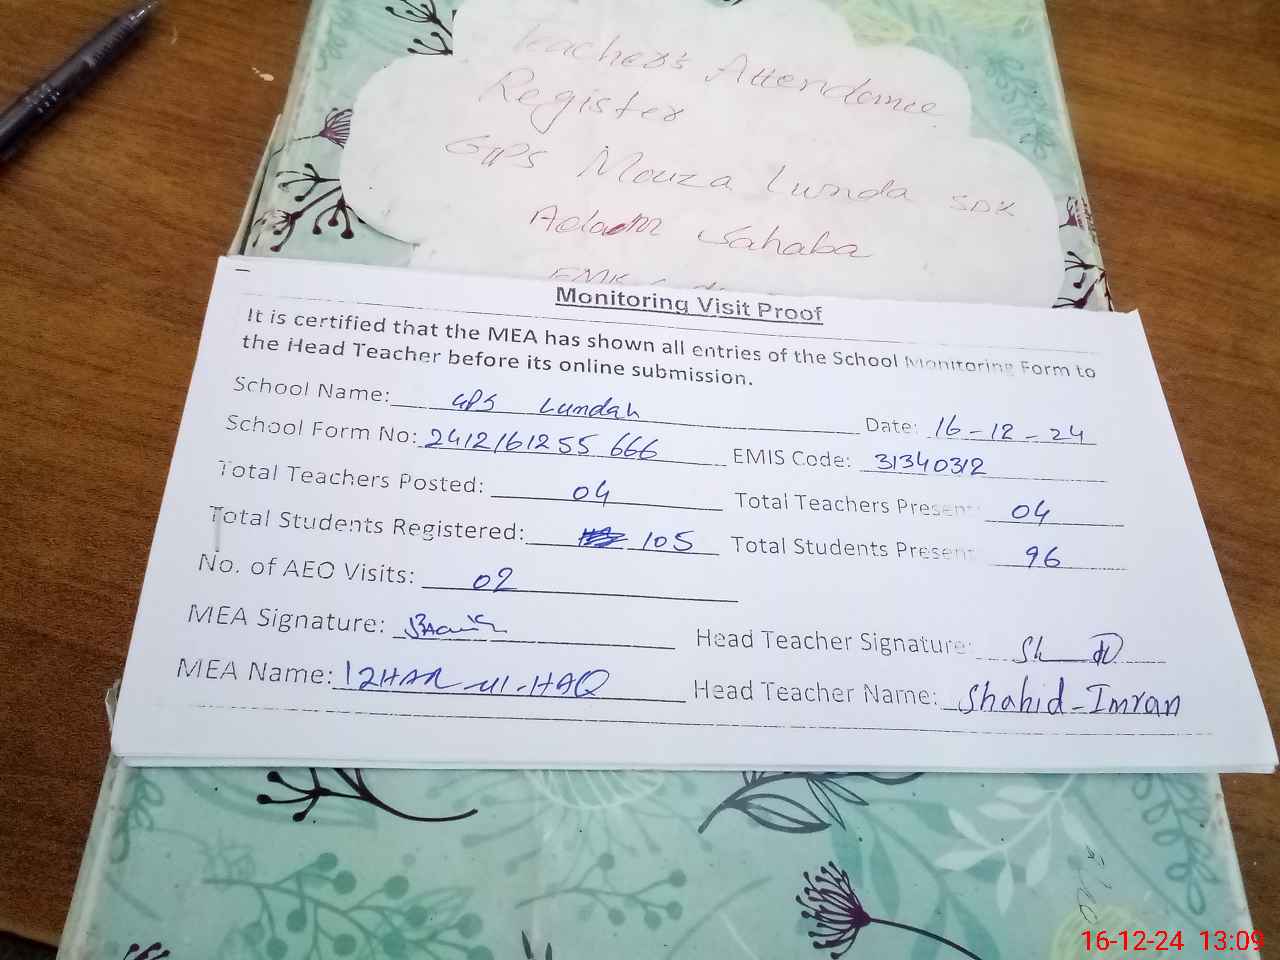 Teacher's Attendance
Register
GPS Mouza Lunda SDK
Adam Sahaba
EMIS
Monitoring Visit Proof
It is certified that the MEA has shown all entries of the School Monitoring Form to
the Head Teacher before its online submission.
School Name: GPS Lundah Date: 16-12-24
School Form No: 2412161255 666 EMIS Code: 31340312
Total Teachers Posted: 04 Total Teachers Present: 04
Total Students Registered: 105 Total Students Present: 96
No. of AEO Visits: 02
MEA Signature: Head Teacher Signature: Sh
MEA Name: IZHAR-ul-HAQ Head Teacher Name: Shahid-Imran
16-12-24 13:09